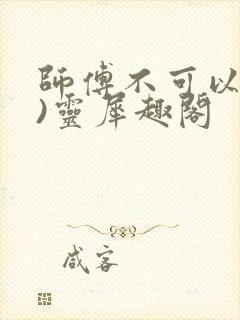 師傅不可以
)靈犀趣閣
咸客